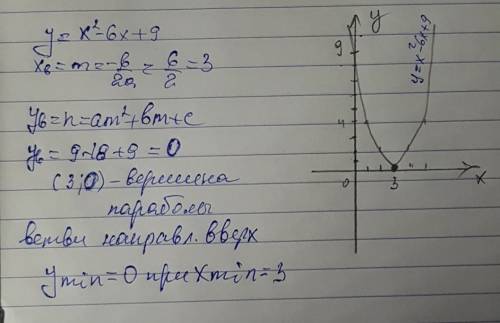 y = x² - 6x + 9
xв = m = -b/2a = 6/2 = 3
yв = n = am² + bm + c
yв = 9 - 18 + 9 = 0
(3; 0) - вершина
параболы
ветви направл. вверх
ymin = 0 при xmin = 3
y
9
4
0
3
x
y = x² - 6x + 9